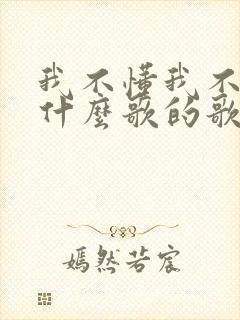 我不懂我不
什麼歌的歌
嫣然若宸